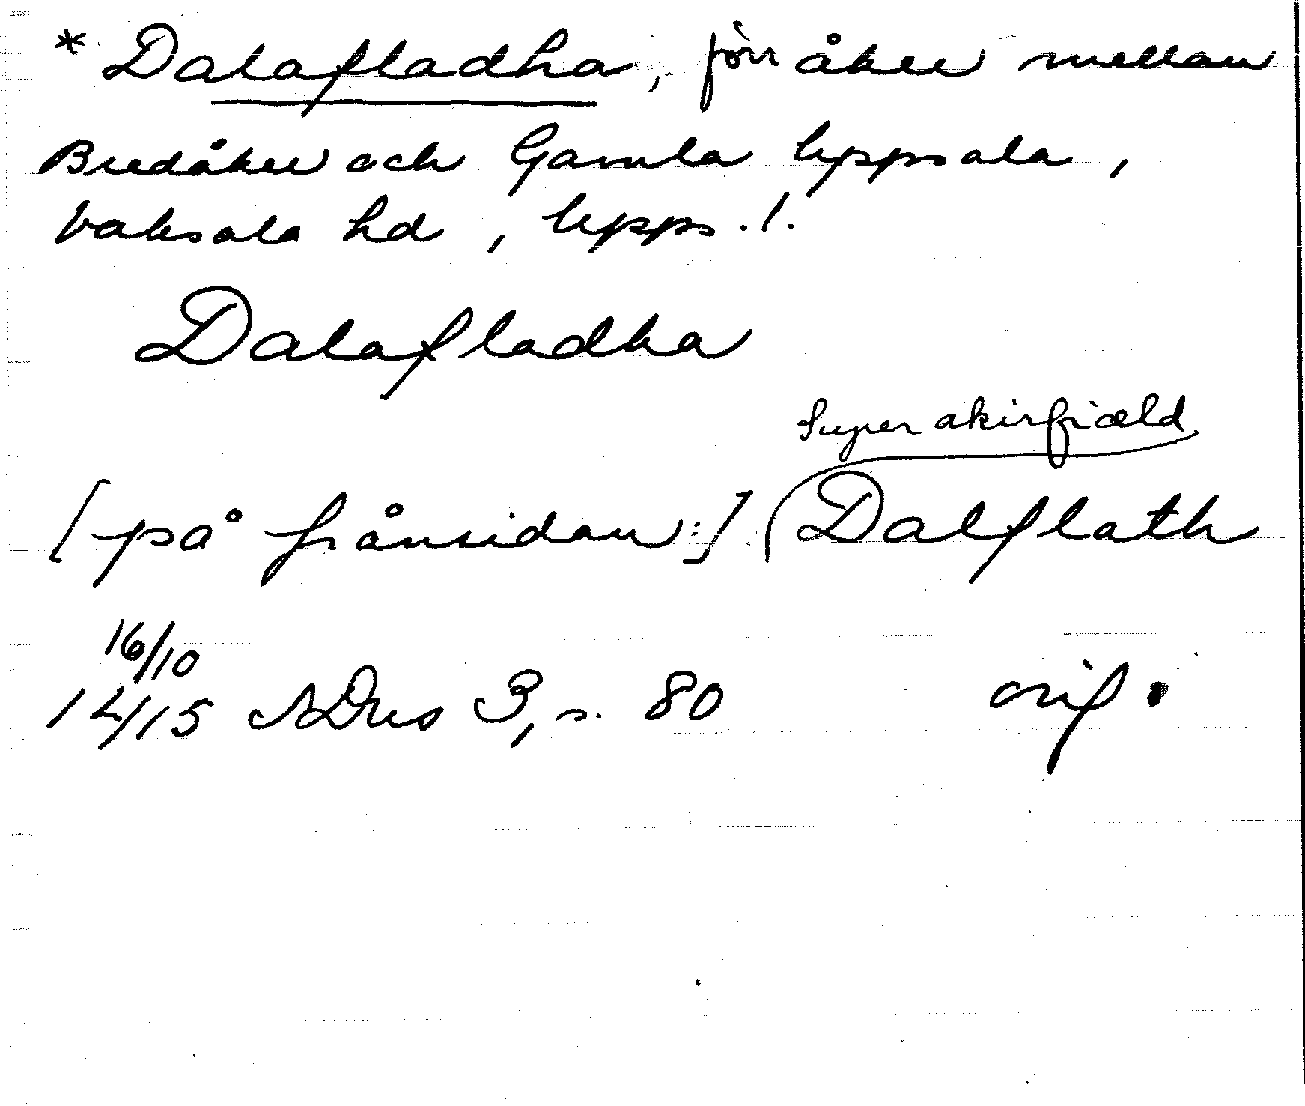 * Dalafladha, förr åker mellan
Bredåker och Gamla Uppsala,
Vaksala hd, Upps. l.
Dalafladha
Super akirfiæld
[på frånsidan:] (Dalflath
16/10
1415 SDns 3, s. 80 orig.